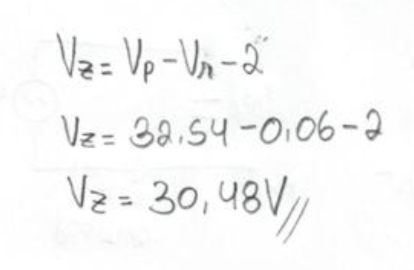 Vz = Vp - Vr - 2
Vz = 32.54 - 0.06 - 2
Vz = 30,48V//